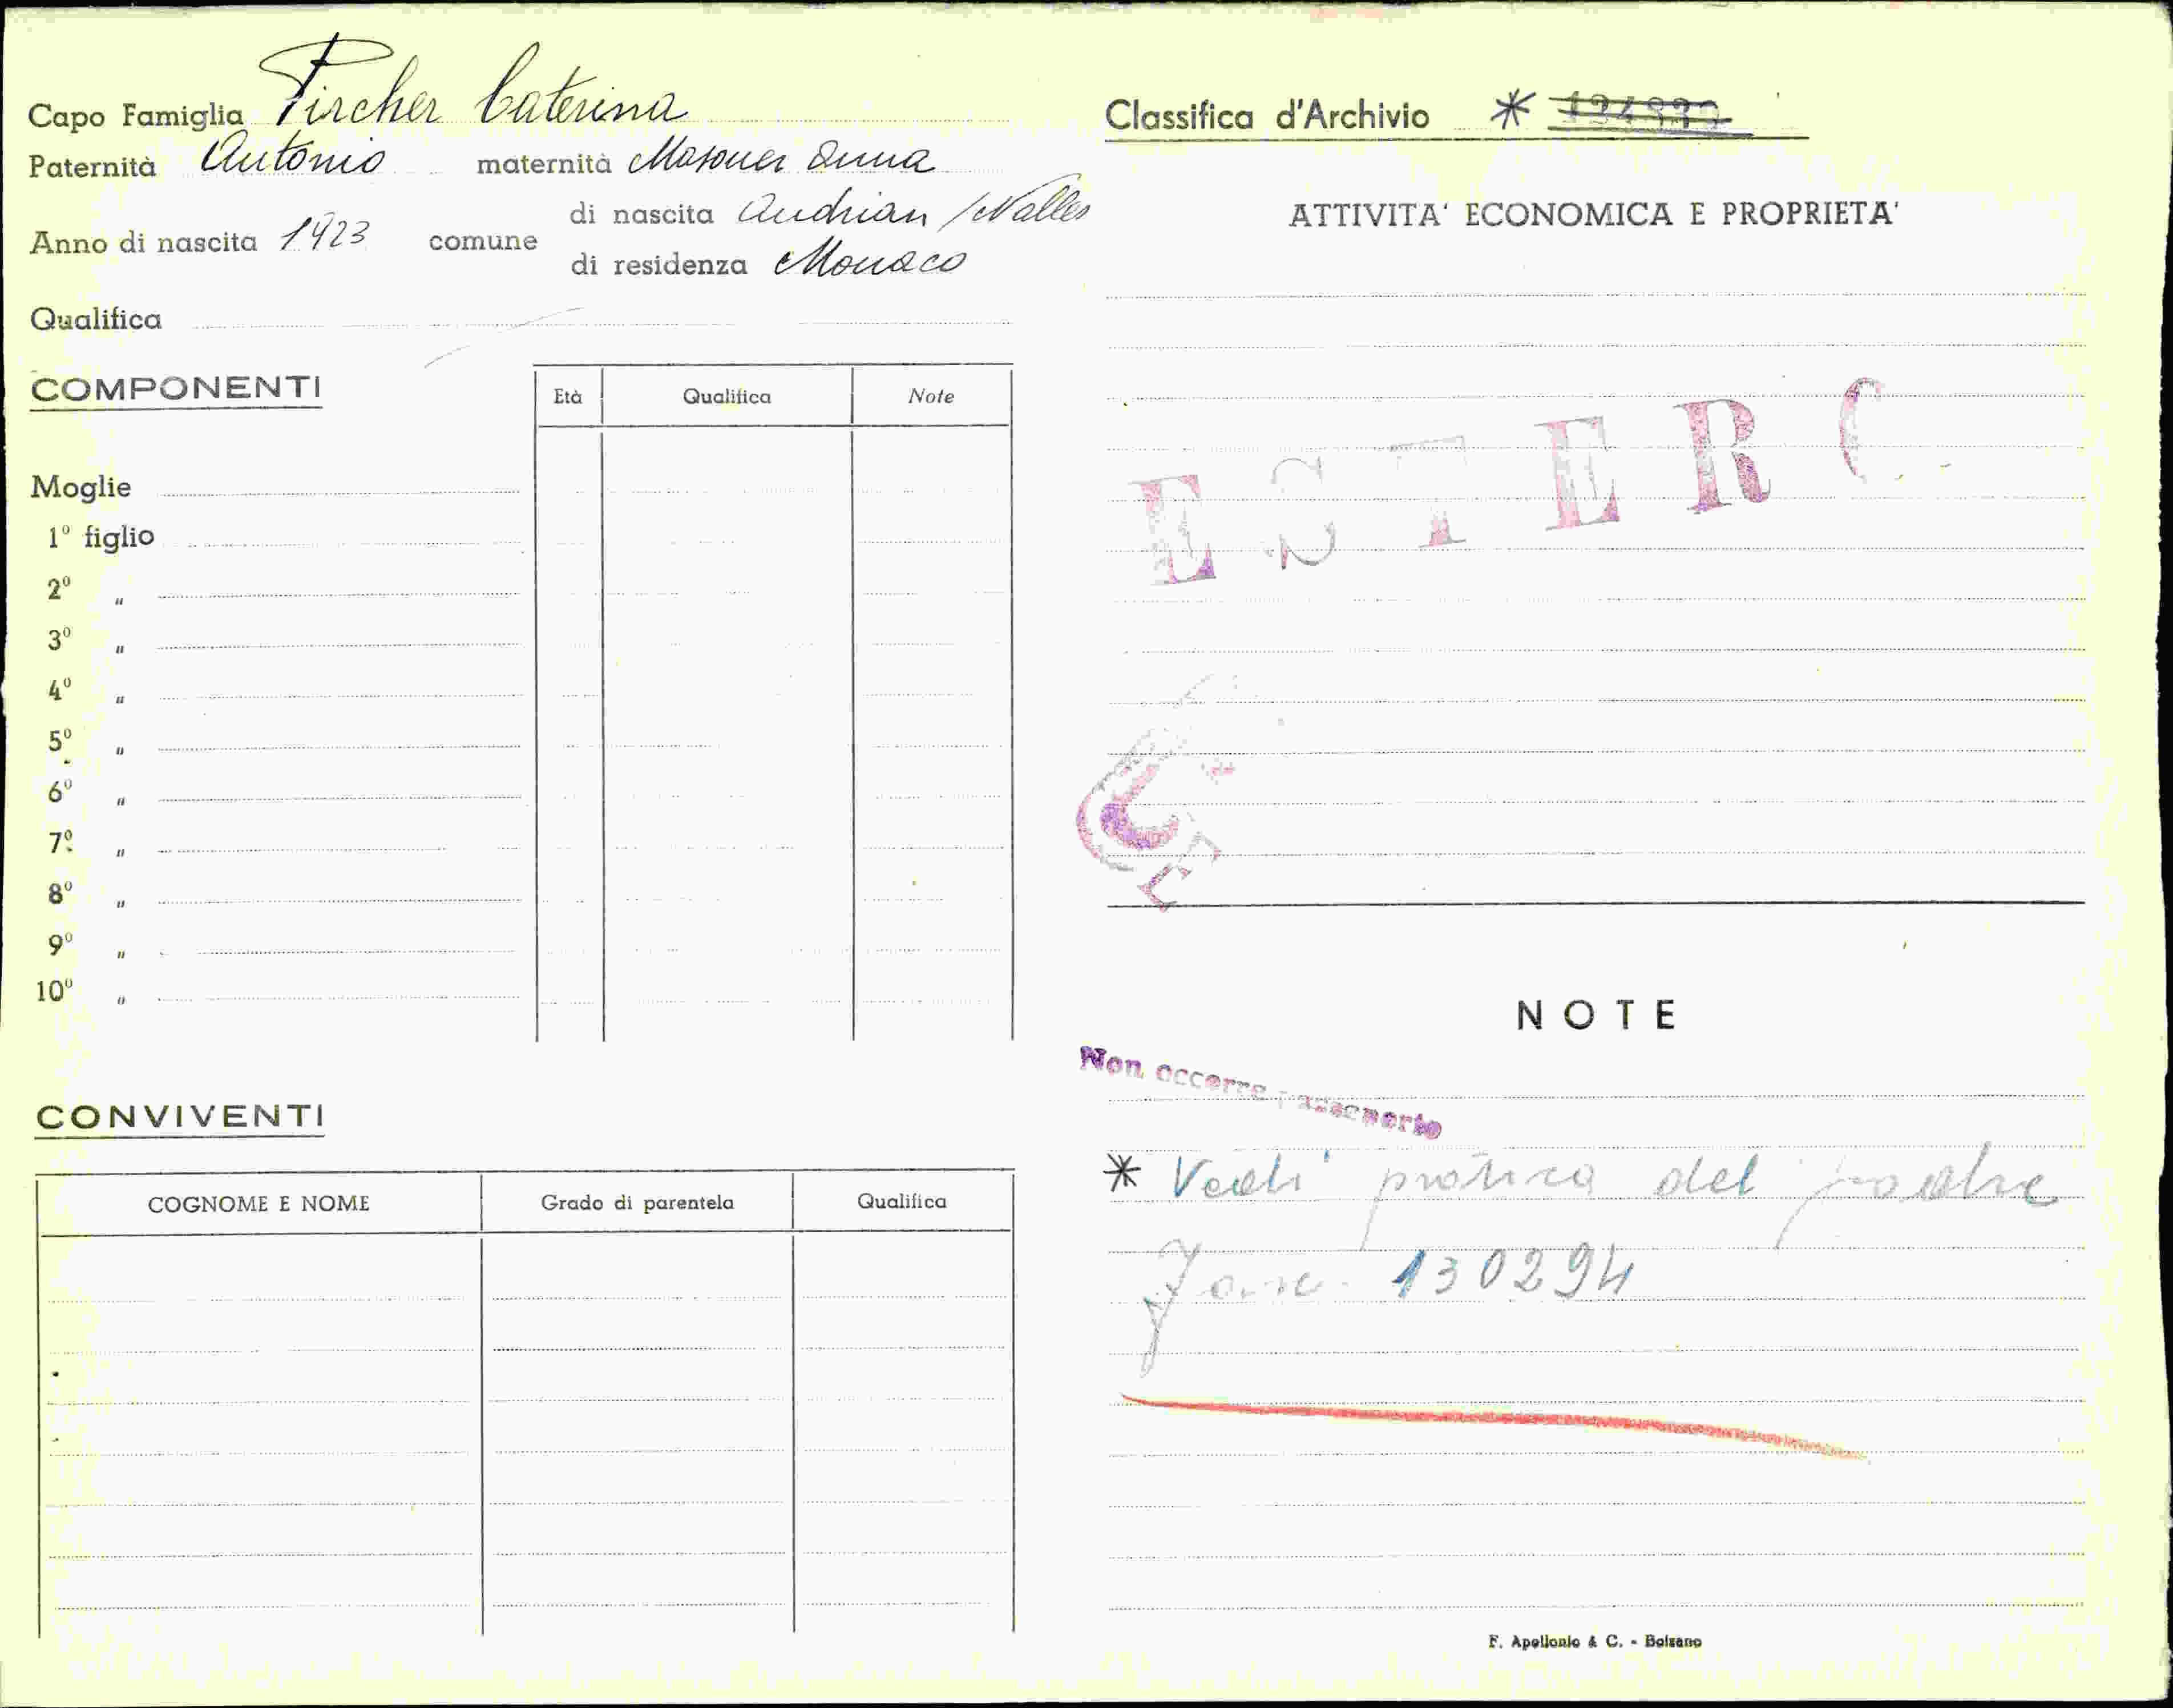 Capo Famiglia Pircher Caterina
Paternità Antonio maternità Masoner Anna
Anno di nascita 1923 comune di nascita Andrian / Nalles
di residenza Monaco
Qualifica
COMPONENTI
Età Qualifica Note
Moglie
1º figlio
2º "
3º "
4º "
5º "
6º "
7º "
8º "
9º "
10º "
CONVIVENTI
COGNOME E NOME Grado di parentela Qualifica
Classifica d'Archivio *
ATTIVITA' ECONOMICA E PROPRIETA'
ESTERO
NOTE
Non occorre
* Vedi pratica del padre
130294
F. Apollonio & C. - Bolzano